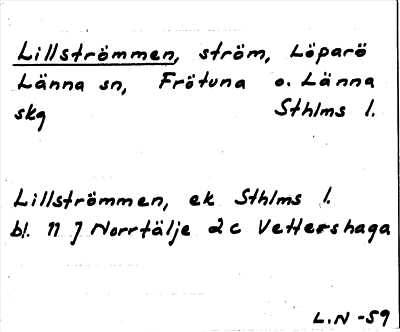 Lillströmmen, ström, Löparö
Länna sn, Frötuna o. Länna
skg Sthlms l.
Lillströmmen, ek Sthlms l.
bl. 11 J Norrtälje 2c Vettershaga
L.N -59